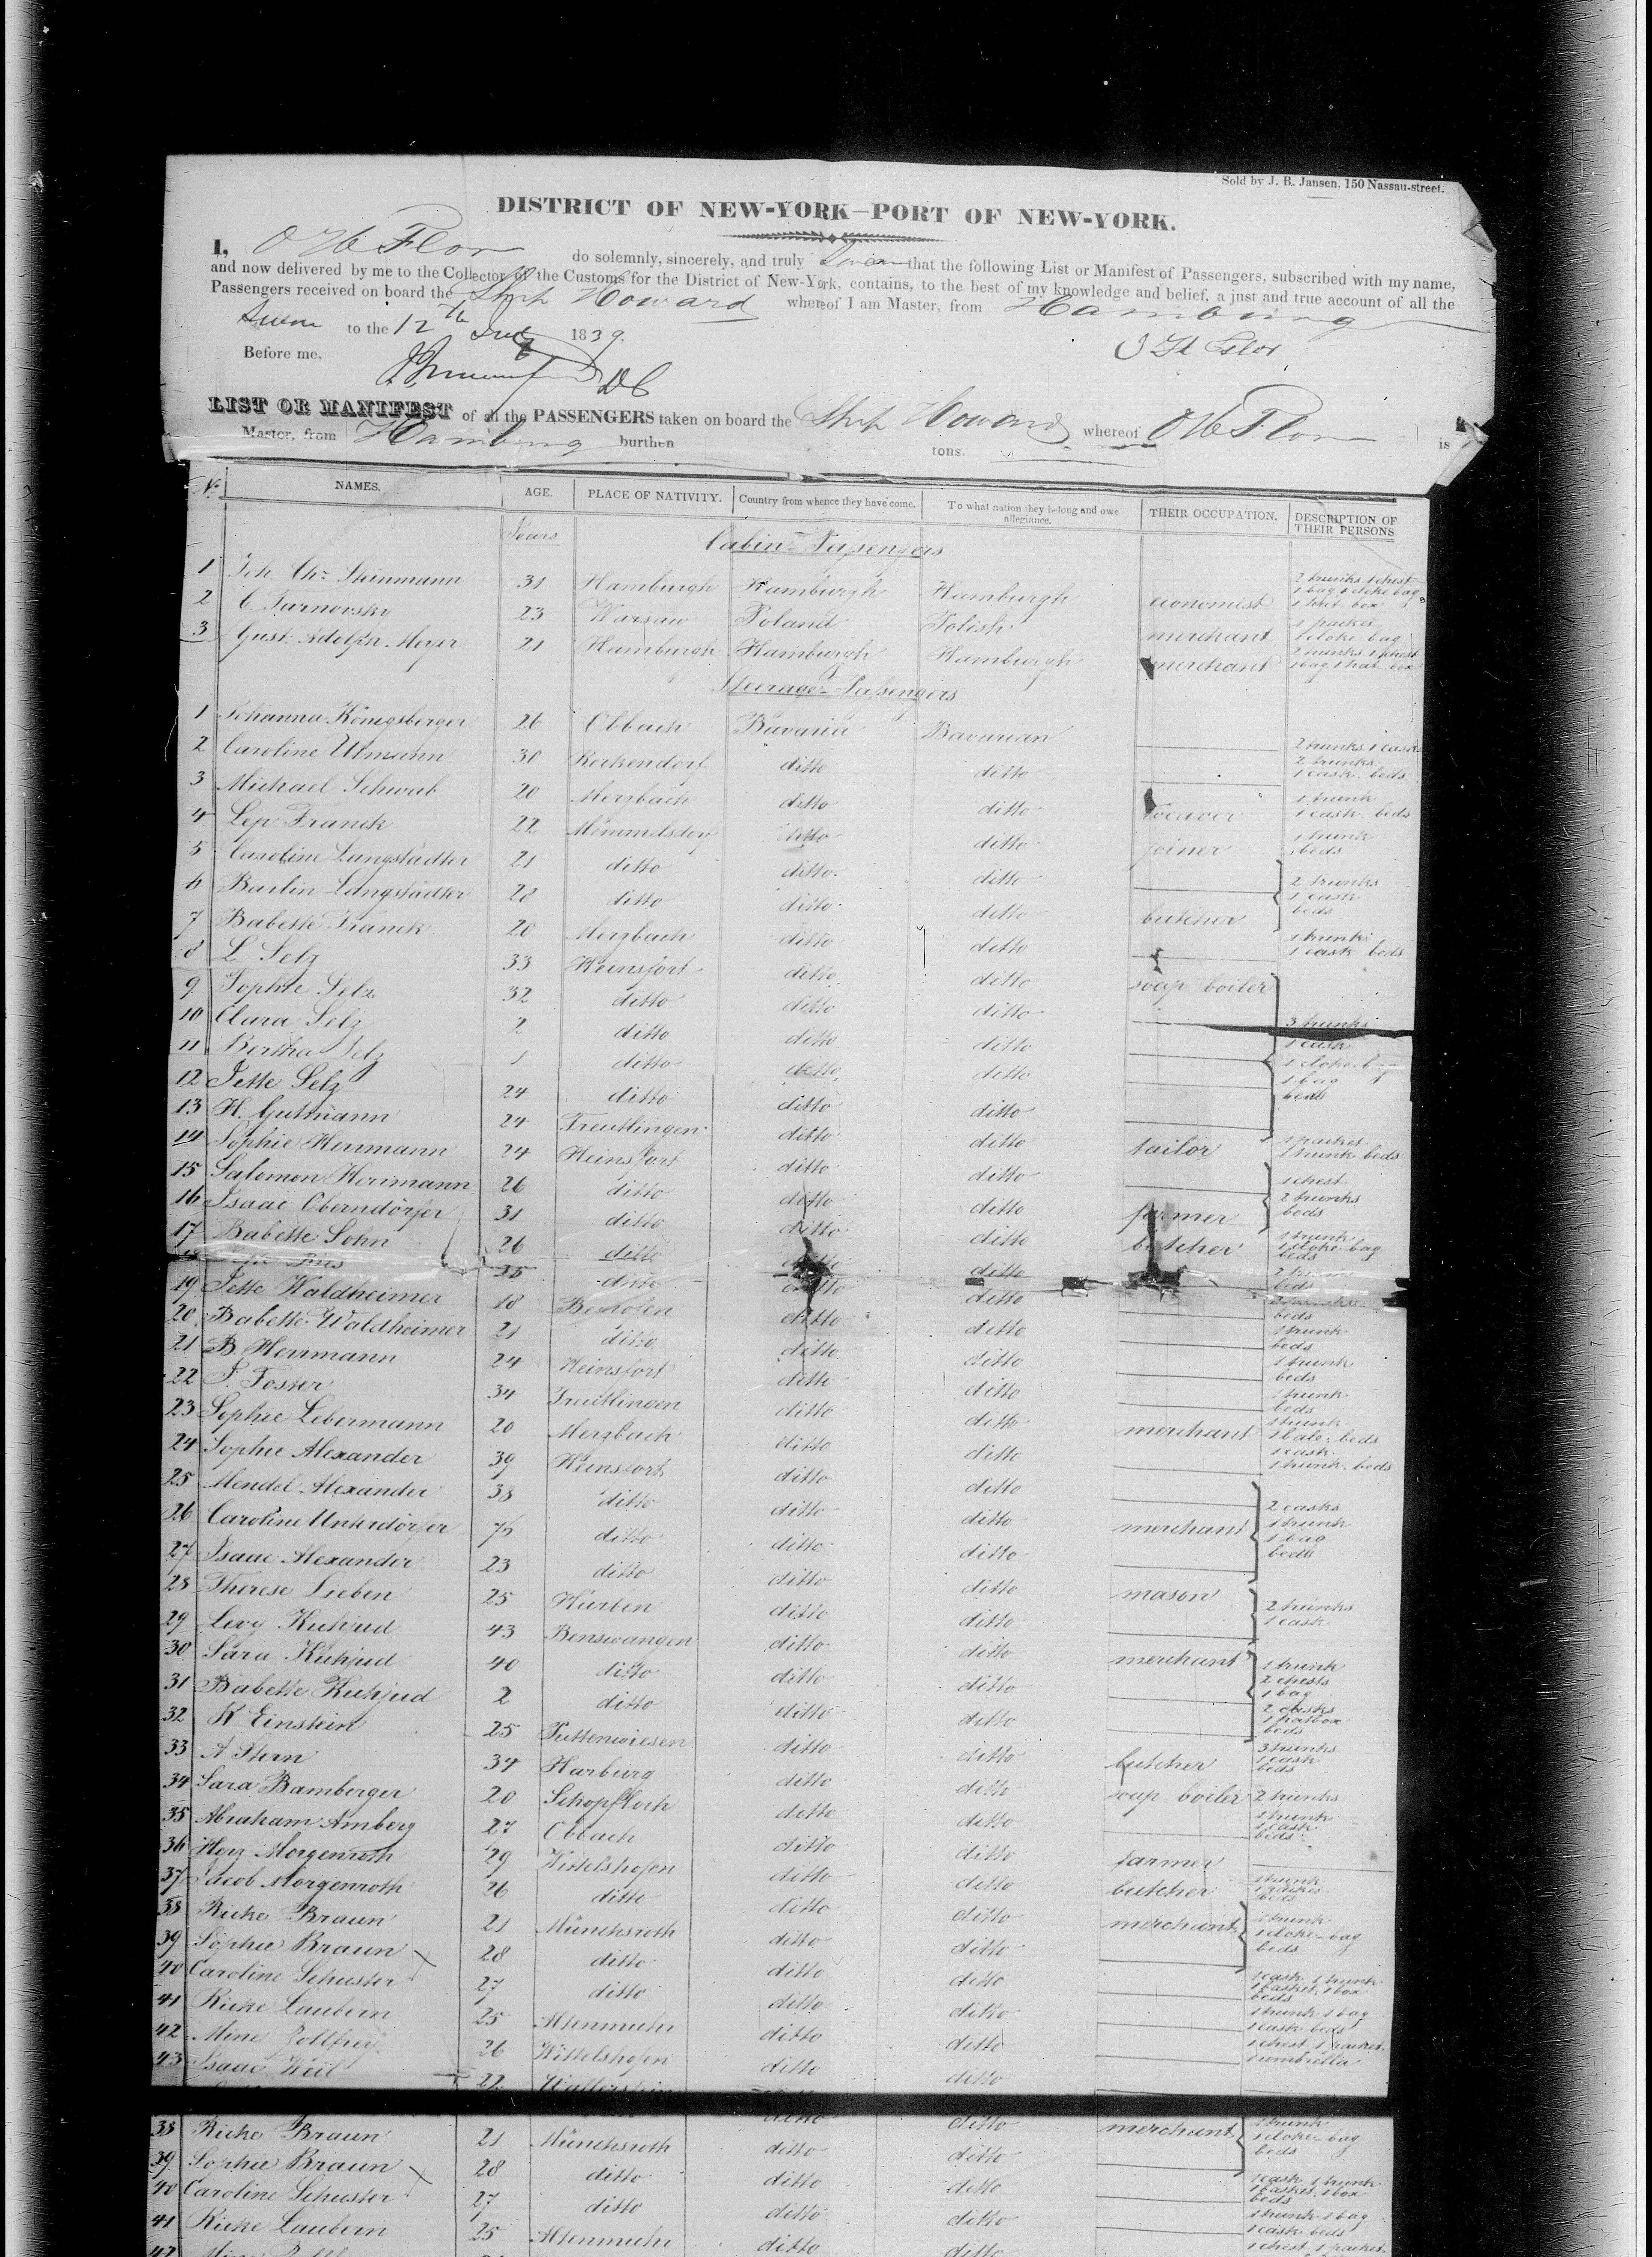 Sold by J. B. Jansen, 150 Nassau-street.
DISTRICT OF NEW-YORK—PORT OF NEW-YORK.
I, do solemnly, sincerely, and truly that the following List or Manifest of Passengers, subscribed with my name,
and now delivered by me to the Collector of the Customs for the District of New-York, contains, to the best of my knowledge and belief, a just and true account of all the
Passengers received on board the Ship Howard whereof I am Master, from Hamburg
to the 12th 1839.
Before me.
LIST OR MANIFEST of all the PASSENGERS taken on board the Ship Howard whereof is
Master, from Hamburg burthen tons.
No. NAMES. AGE. PLACE OF NATIVITY. Country from whence they have come. To what nation they belong and owe allegiance. THEIR OCCUPATION. DESCRIPTION OF THEIR PERSONS
Years Cabin-Passengers
1 Joh. Chr. Steinmann 31 Hamburgh Hamburgh Hamburgh economist 2 trunks 1 chest
2 C. Tarnovsky 23 Warsaw Poland Polish merchant
3 Gust. Adolph Meyer 21 Hamburgh Hamburgh Hamburgh merchant 2 trunks 1 chest 1 bag 1 hat box
Steerage-Passengers
1 Johanna Königsberger 26 Obbach Bavaria Bavarian 2 trunks 1 cask
2 Caroline Ulmann 30 Reckendorf ditto ditto 2 trunks 1 cask beds
3 Michael Schwab 20 Merzbach ditto ditto weaver 1 trunk 1 cask beds
4 Lep Franck 22 Memmelsdorf ditto ditto joiner 1 trunk beds
5 Caroline Langstädter 21 ditto ditto ditto 2 trunks
6 Barlin Langstädter 28 ditto ditto ditto butcher 1 cask beds
7 Babette Franck 20 Merzbach ditto ditto 1 trunk 1 cask beds
8 L. Selz 33 Heinsfort ditto ditto soap boiler
9 Sophie Selz 32 ditto ditto ditto 3 trunks
10 Clara Selz 2 ditto ditto ditto 1 cask
11 Bertha Selz 1 ditto ditto ditto 1 bag
12 Jette Selz 24 ditto ditto ditto beds
13 H. Gutmann 24 Treutlingen ditto ditto tailor 1 packet 1 trunk beds
14 Sophie Herrmann 24 Heinsfort ditto ditto 1 chest
15 Salomon Herrmann 26 ditto ditto ditto farmer 2 trunks beds
16 Isaac Oberndörfer 31 ditto ditto ditto butcher 1 trunk 1 cloke-bag beds
17 Babette Sohn 26 ditto ditto ditto beds
18 35 ditto ditto ditto beds
19 Jette Waldheimer 18 ditto ditto 1 trunk beds
20 Babette Waldheimer 21 ditto ditto ditto 1 trunk beds
21 B. Herrmann 24 Heinsfort ditto ditto 1 trunk beds
22 F. Foster 34 Treutlingen ditto ditto merchant 1 trunk 1 bale beds
23 Sophie Lebermann 20 Merzbach ditto ditto 1 cask 1 trunk beds
24 Sophie Alexander 39 Heinsfort ditto ditto 2 casks
25 Mendel Alexander 38 ditto ditto ditto merchant 1 trunk 1 bag
26 Caroline Unterdörfer ditto ditto ditto beds
27 Isaac Alexander 23 ditto ditto ditto mason 2 trunks
28 Therese Lieben 25 Hürben ditto ditto 1 cask
29 Levy Kuhjud 43 Benswangen ditto ditto merchant 1 trunk
30 Sara Kuhjud 40 ditto ditto ditto 2 chests 1 bag
31 Babette Kuhjud 2 ditto ditto ditto 2 casks 1 hatbox beds
32 K Einstein 25 Buttenwiesen ditto ditto butcher 3 trunks 1 cask beds
33 A Stern 34 Harburg ditto ditto soap boiler 2 trunks
34 Sara Bamberger 20 Schopfloch ditto ditto 1 trunk 1 cask beds
35 Abraham Amberg 27 Obbach ditto ditto farmer
36 Herz Morgenroth 29 Wittelshofen ditto ditto butcher 1 trunk 1 packet beds
37 Jacob Morgenroth 26 ditto ditto ditto merchant 1 trunk
38 Ricke Braun 21 Münchsroth ditto ditto 1 cloke-bag beds
39 Sophie Braun 28 ditto ditto ditto 1 cask 1 trunk 1 box beds
40 Caroline Schuster 27 ditto ditto ditto 1 trunk 1 bag 1 cask beds
41 Ricke Laubern 25 Altenmuhr ditto ditto 1 chest 1 packet 1 umbrella
42 Mine Zollfrey 26 Wittelshofen ditto ditto
43 Isaac Weil 22 Wallerstein
38 Ricke Braun 21 Münchsroth ditto ditto merchant 1 trunk 1 cloke-bag beds
39 Sophie Braun 28 ditto ditto ditto 1 cask 1 trunk 1 box beds
40 Caroline Schuster 27 ditto ditto ditto 1 trunk 1 bag 1 cask beds
41 Ricke Laubern 25 Altenmuhr ditto ditto 1 chest 1 packet